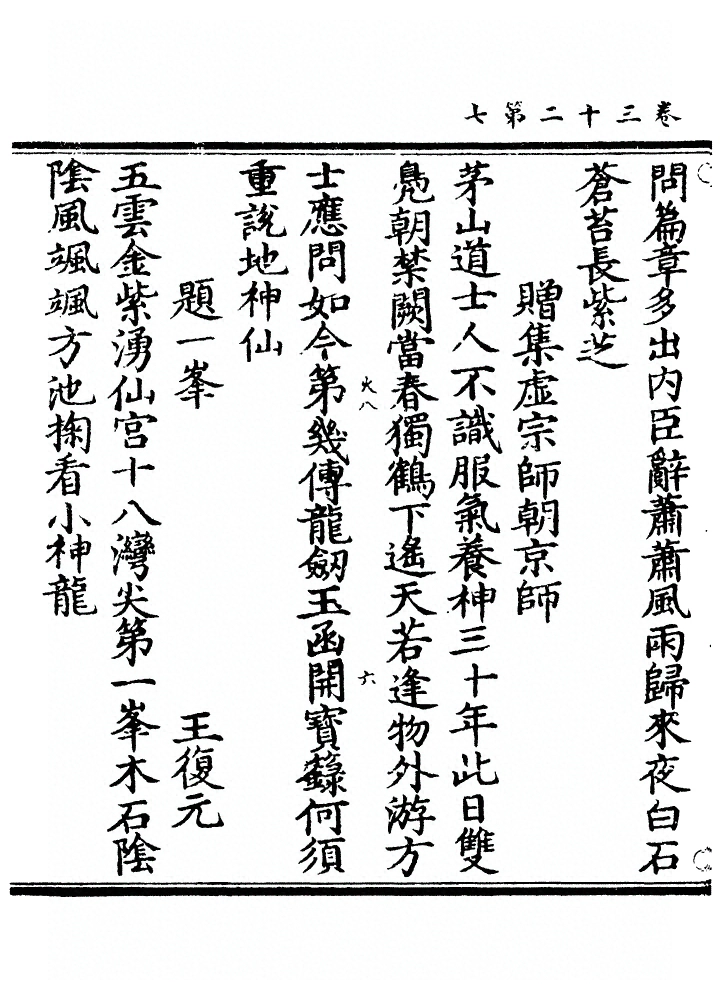 卷三十二第七
問篇章多出内臣辭蕭蕭風雨歸來夜白石
蒼苔長紫芝
贈集虛宗師朝京師
茅山道士人不識服氣養神三十年此日雙
鳧朝禁闕當春獨鶴下遙天若逢物外游方
火八
六
士應問如今第幾傳龍劒玉函開寶籙何須
重說地神仙
題一峯
王復元
五雲金紫湧仙宮十八灣尖第一峯木石陰
陰風颯颯方池掬看小神龍